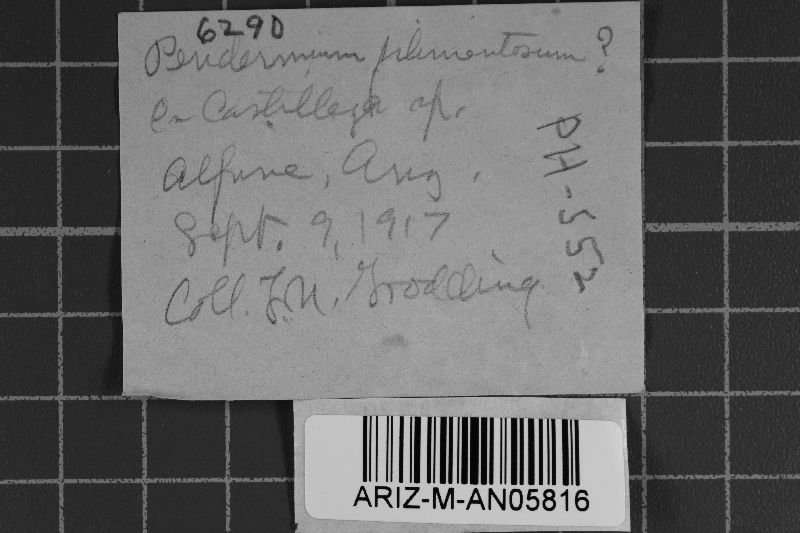 6290
Peridermium filamentosum?
On Castilleja sp.
Alpine, Ariz.
Sept. 9, 1917
Coll. L.N. Goodding
PH-552
ARIZ-M-AN05816